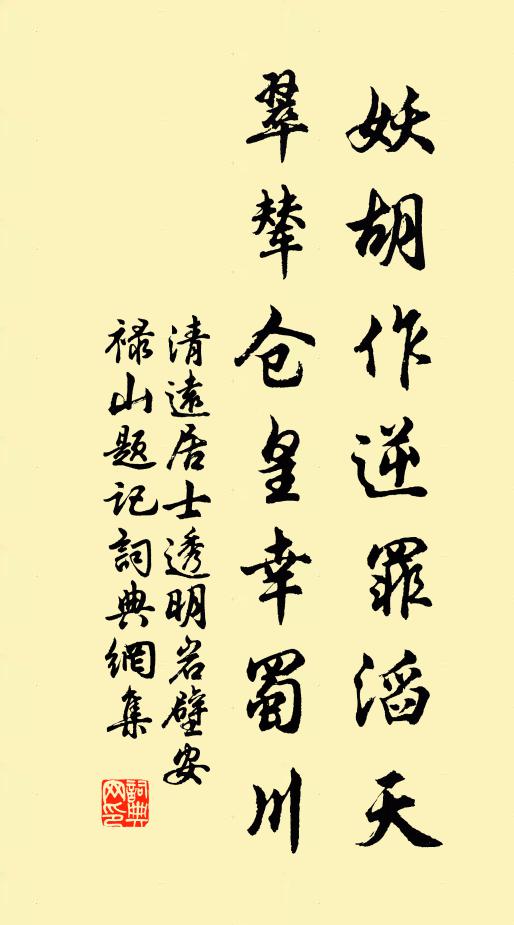 妖胡作逆罪滔天
翠辇仓皇幸蜀川
清遠居士透明岩壁安
禄山题记詞典網集
詞典
网印